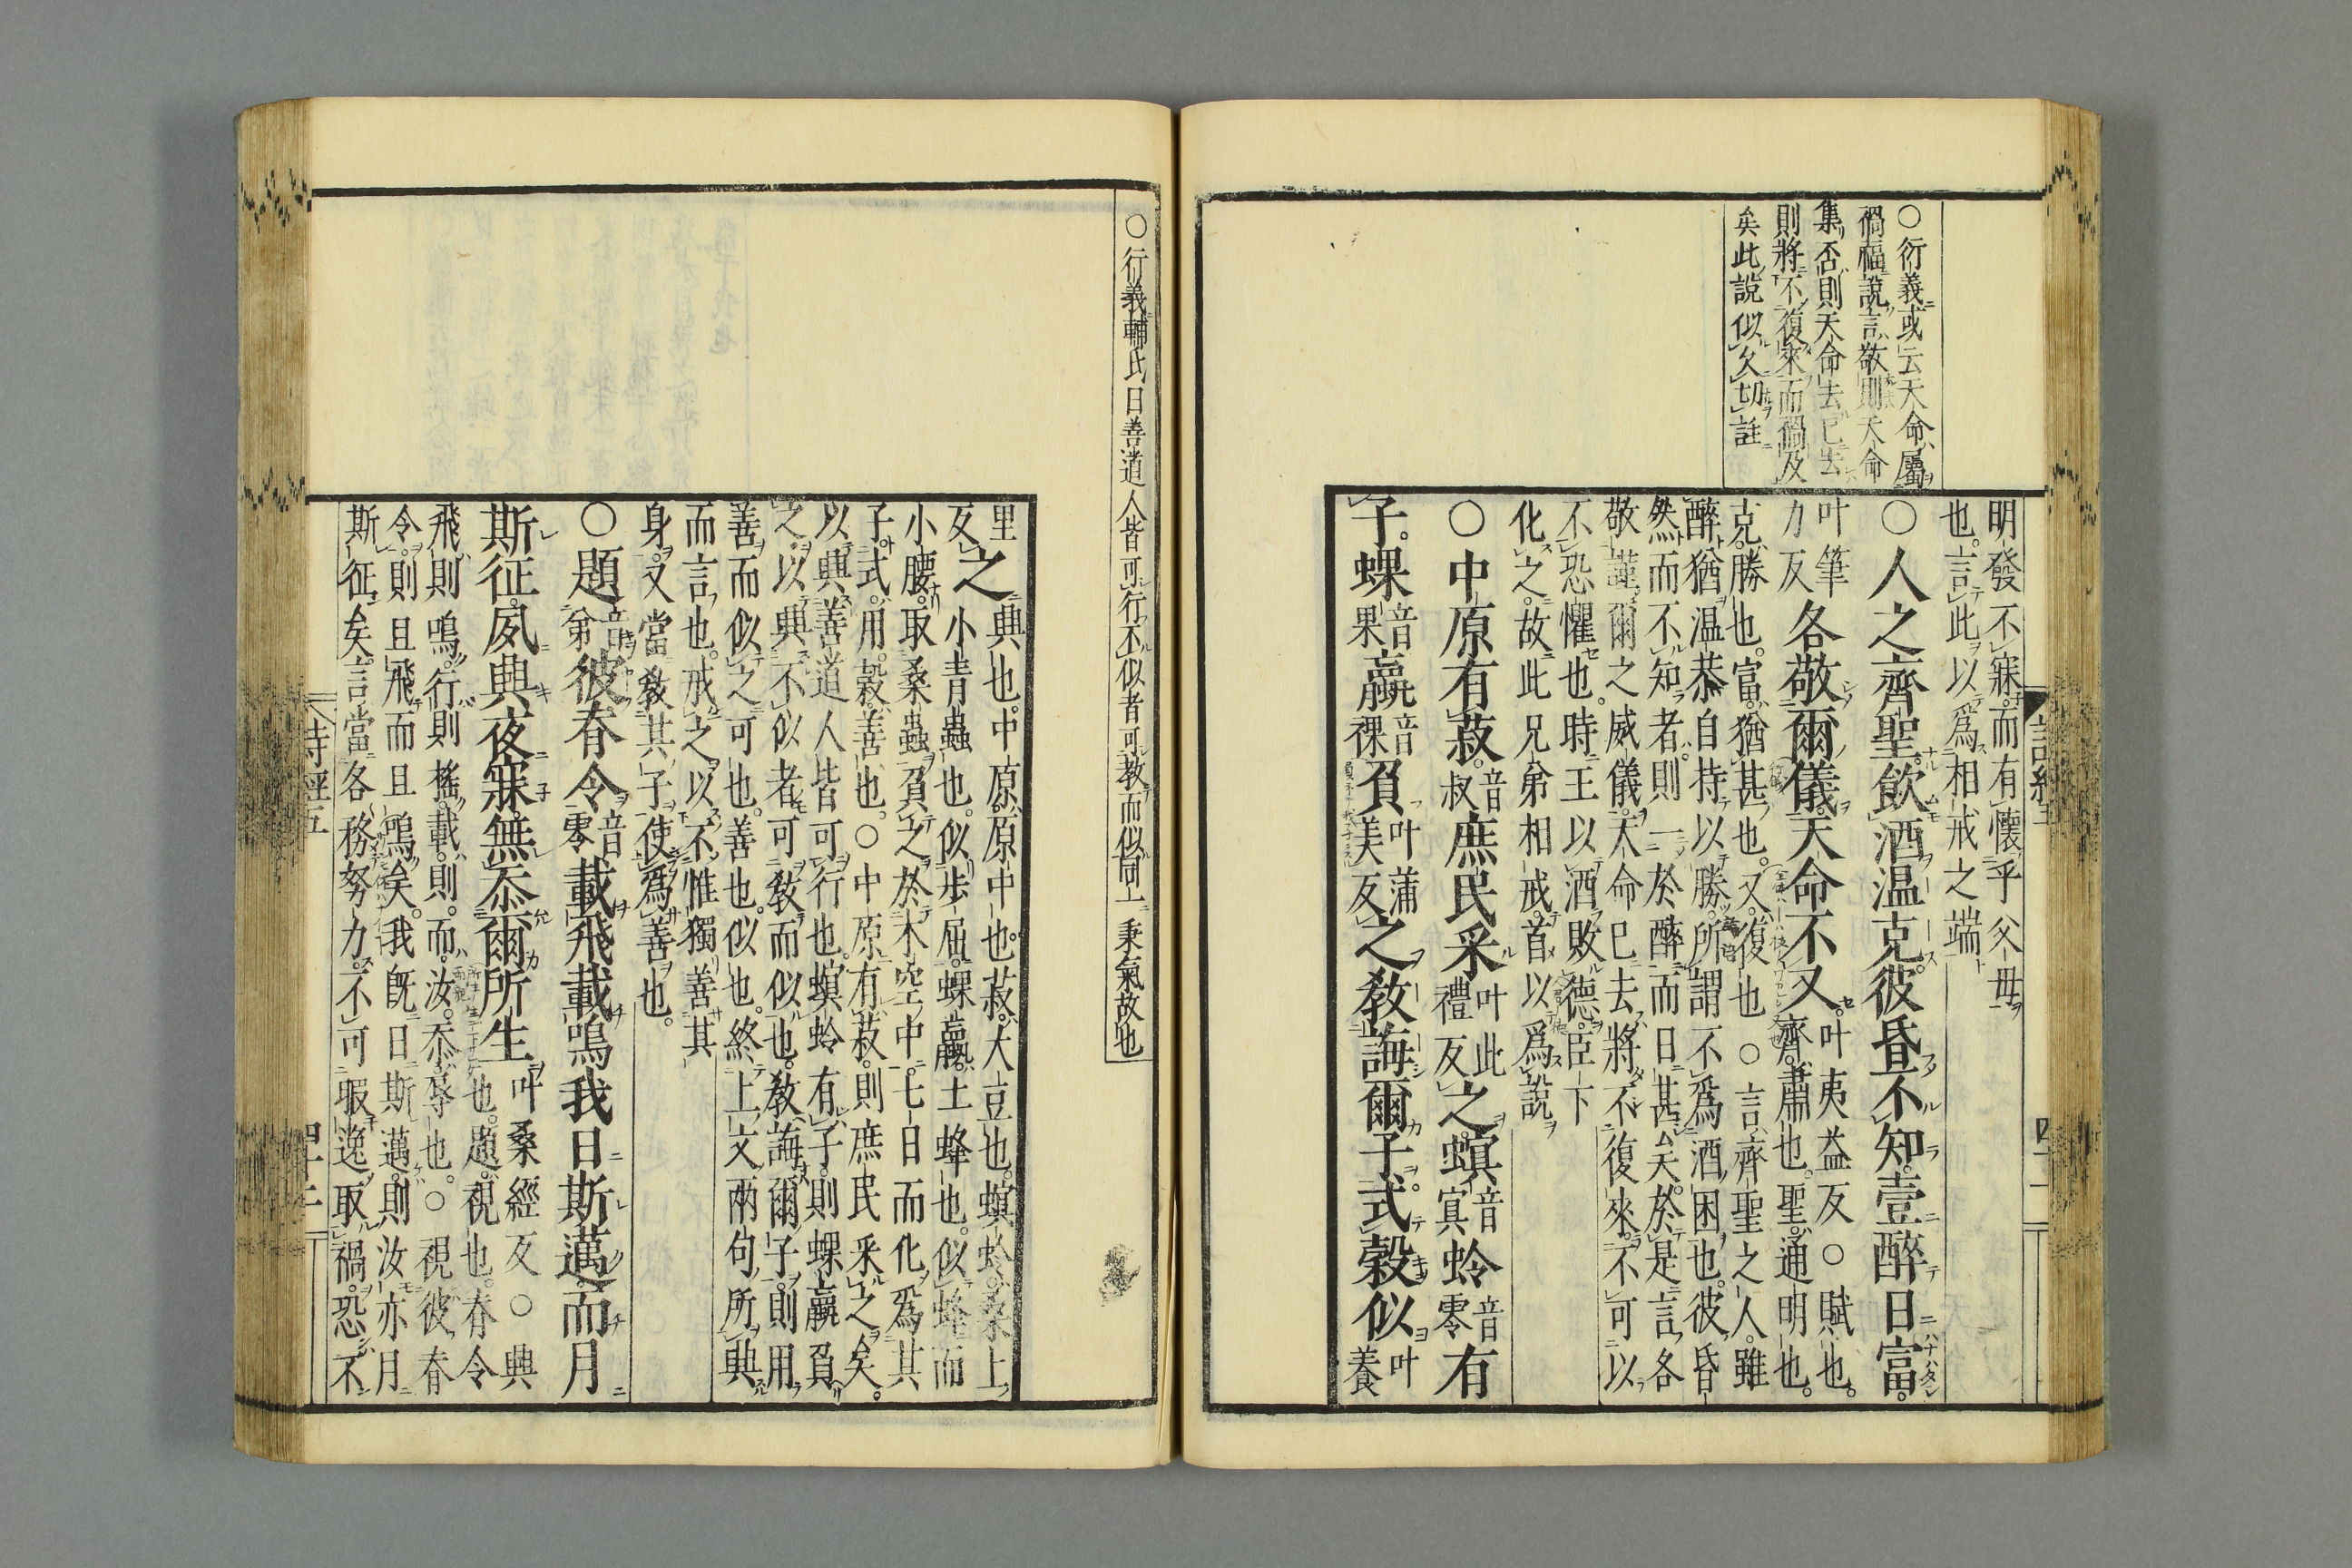 ○衍義或云天命屬
禍福說言敬則天命
集否則天命去已去
則將不復來而禍及
矣此說似欠切註
明發不寐而有懷乎父母
也言此以爲相戒之端
○人之齊聖飲酒温克彼昏不知壹醉日富
叶筆力反各敬爾儀天命不又叶夷益反○賦也
齊肅也聖通明也
克勝也富猶甚也又復也○言齊聖之人雖
醉猶温恭自持以勝所謂不爲酒困也彼昏
然而不知者則一於醉而日甚矣於是言各
敬謹爾之威儀天命已去將不復來不可以
不恐懼也時王以酒敗德臣下
化之故此兄弟相戒首以爲說
○中原有菽音叔庶民采叶此禮反之螟音冥蛉音零有
子蜾音果蠃音裸負叶蒲美反之教誨爾子式穀似叶養
○衍義輔氏曰善道人皆可行不似者可教而似同一秉氣故也
里反之
興也中原原中也菽大豆也螟蛉桑上
小青蟲也似步屈蜾蠃土蜂也似蜂而
小腰取桑蟲負之於木空中七日而化爲其
子式用穀善也○中原有菽則庶民采之矣
以興善道人皆可行也螟蛉有子則蜾蠃負
之以興不似者可教而似也教誨爾子則用
善而似之可也善也似也終上文兩句所興
而言也戒之以不惟獨善其
身又當教其子使爲善也
○題音弟彼脊令音零載飛載鳴我日斯邁而月
斯征夙興夜寐無忝爾所生叶桑經反○興
也題視也脊令
飛則鳴行則搖載則而汝忝辱也○視彼脊
令則且飛而且鳴矣我既日斯邁則汝亦月
斯征矣言當各務努力不可暇逸取禍恐不
詩經五